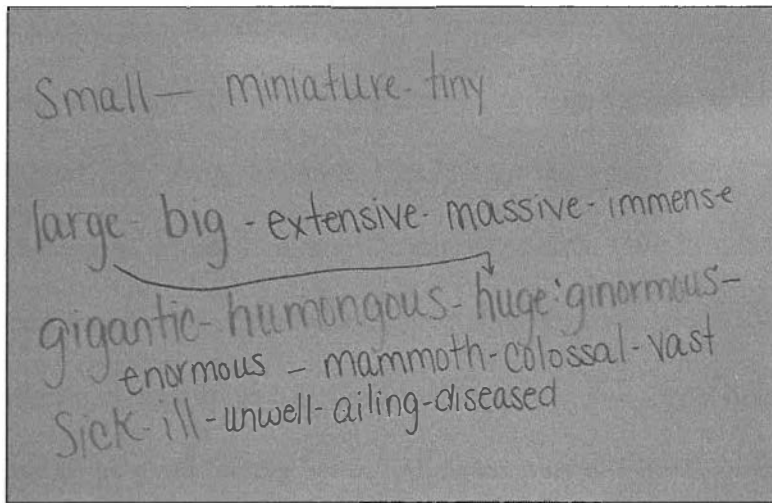 Small — miniature - tiny
large - big - extensive - massive - immense
gigantic - humongous - huge : ginormous -
enormous - mammoth - colossal - vast
Sick - ill - unwell - ailing - diseased